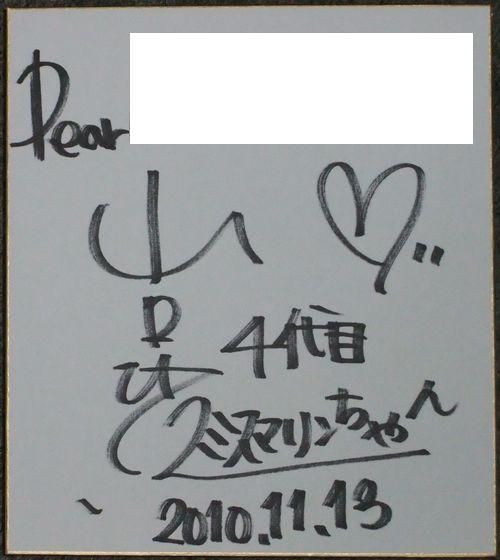 Dear
山
4代目
ミスマリンちゃん
2010.11.13